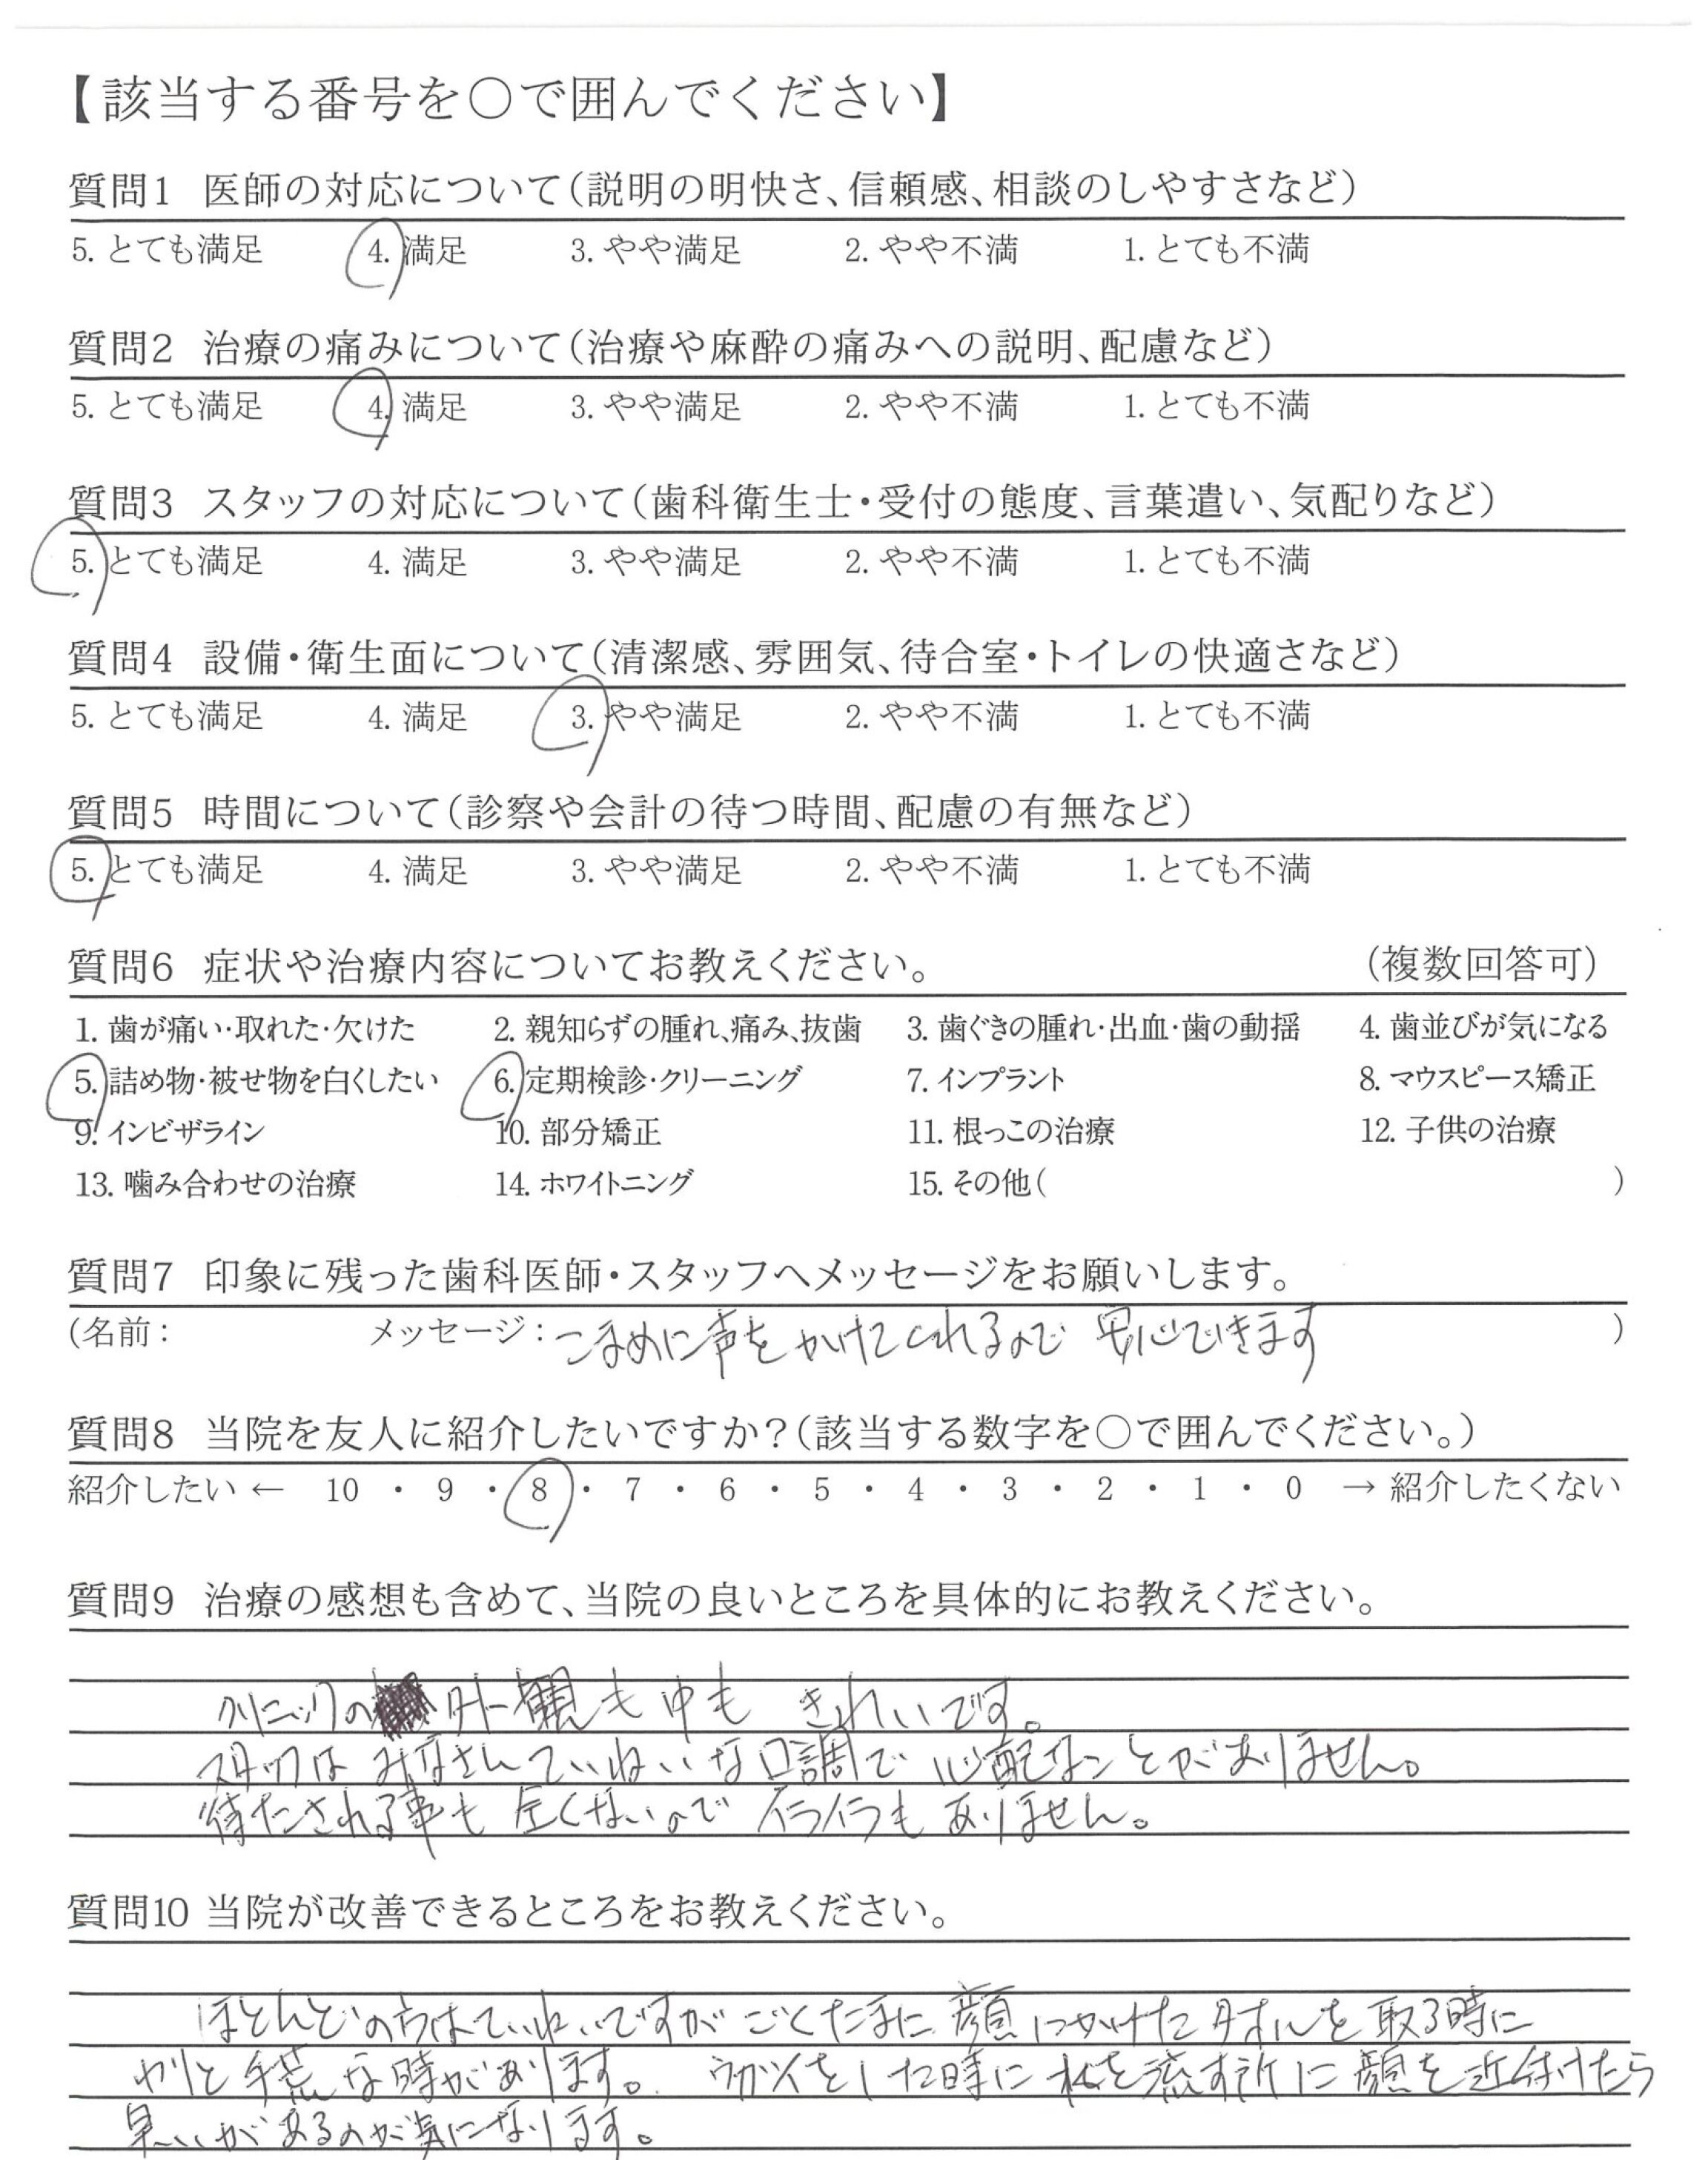 【該当する番号を○で囲んでください】
質問1 医師の対応について(説明の明快さ、信頼感、相談のしやすさなど)
5. とても満足 4. 満足 3. やや満足 2. やや不満 1. とても不満
質問2 治療の痛みについて(治療や麻酔の痛みへの説明、配慮など)
5. とても満足 4. 満足 3. やや満足 2. やや不満 1. とても不満
質問3 スタッフの対応について(歯科衛生士・受付の態度、言葉遣い、気配りなど)
5. とても満足 4. 満足 3. やや満足 2. やや不満 1. とても不満
質問4 設備・衛生面について(清潔感、雰囲気、待合室・トイレの快適さなど)
5. とても満足 4. 満足 3. やや満足 2. やや不満 1. とても不満
質問5 時間について(診察や会計の待つ時間、配慮の有無など)
5. とても満足 4. 満足 3. やや満足 2. やや不満 1. とても不満
質問6 症状や治療内容についてお教えください。 (複数回答可)
1. 歯が痛い・取れた・欠けた 2. 親知らずの腫れ、痛み、抜歯 3. 歯ぐきの腫れ・出血・歯の動揺 4. 歯並びが気になる
5. 詰め物・被せ物を白くしたい 6. 定期検診・クリーニング 7. インプラント 8. マウスピース矯正
9. インビザライン 10. 部分矯正 11. 根っこの治療 12. 子供の治療
13. 噛み合わせの治療 14. ホワイトニング 15. その他( )
質問7 印象に残った歯科医師・スタッフへメッセージをお願いします。
(名前: メッセージ: こまめに声をかけてくれるので 安心できます )
質問8 当院を友人に紹介したいですか?(該当する数字を○で囲んでください。)
紹介したい ← 10 ・ 9 ・ 8 ・ 7 ・ 6 ・ 5 ・ 4 ・ 3 ・ 2 ・ 1 ・ 0 → 紹介したくない
質問9 治療の感想も含めて、当院の良いところを具体的にお教えください。
クリニックの外観も中も きれいです。
スタッフは みなさんていねいな口調で 心配なことがありません。
待たされる事も 全くないので イライラも ありません。
質問10 当院が改善できるところをお教えください。
ほとんどの方はていねいですが ごくたまに 顔にかけたタオルを取る時に
わりと手荒な時があります。 うがいをした時に 水を流す所に 顔を近付けたら
臭いがあるのが気になります。